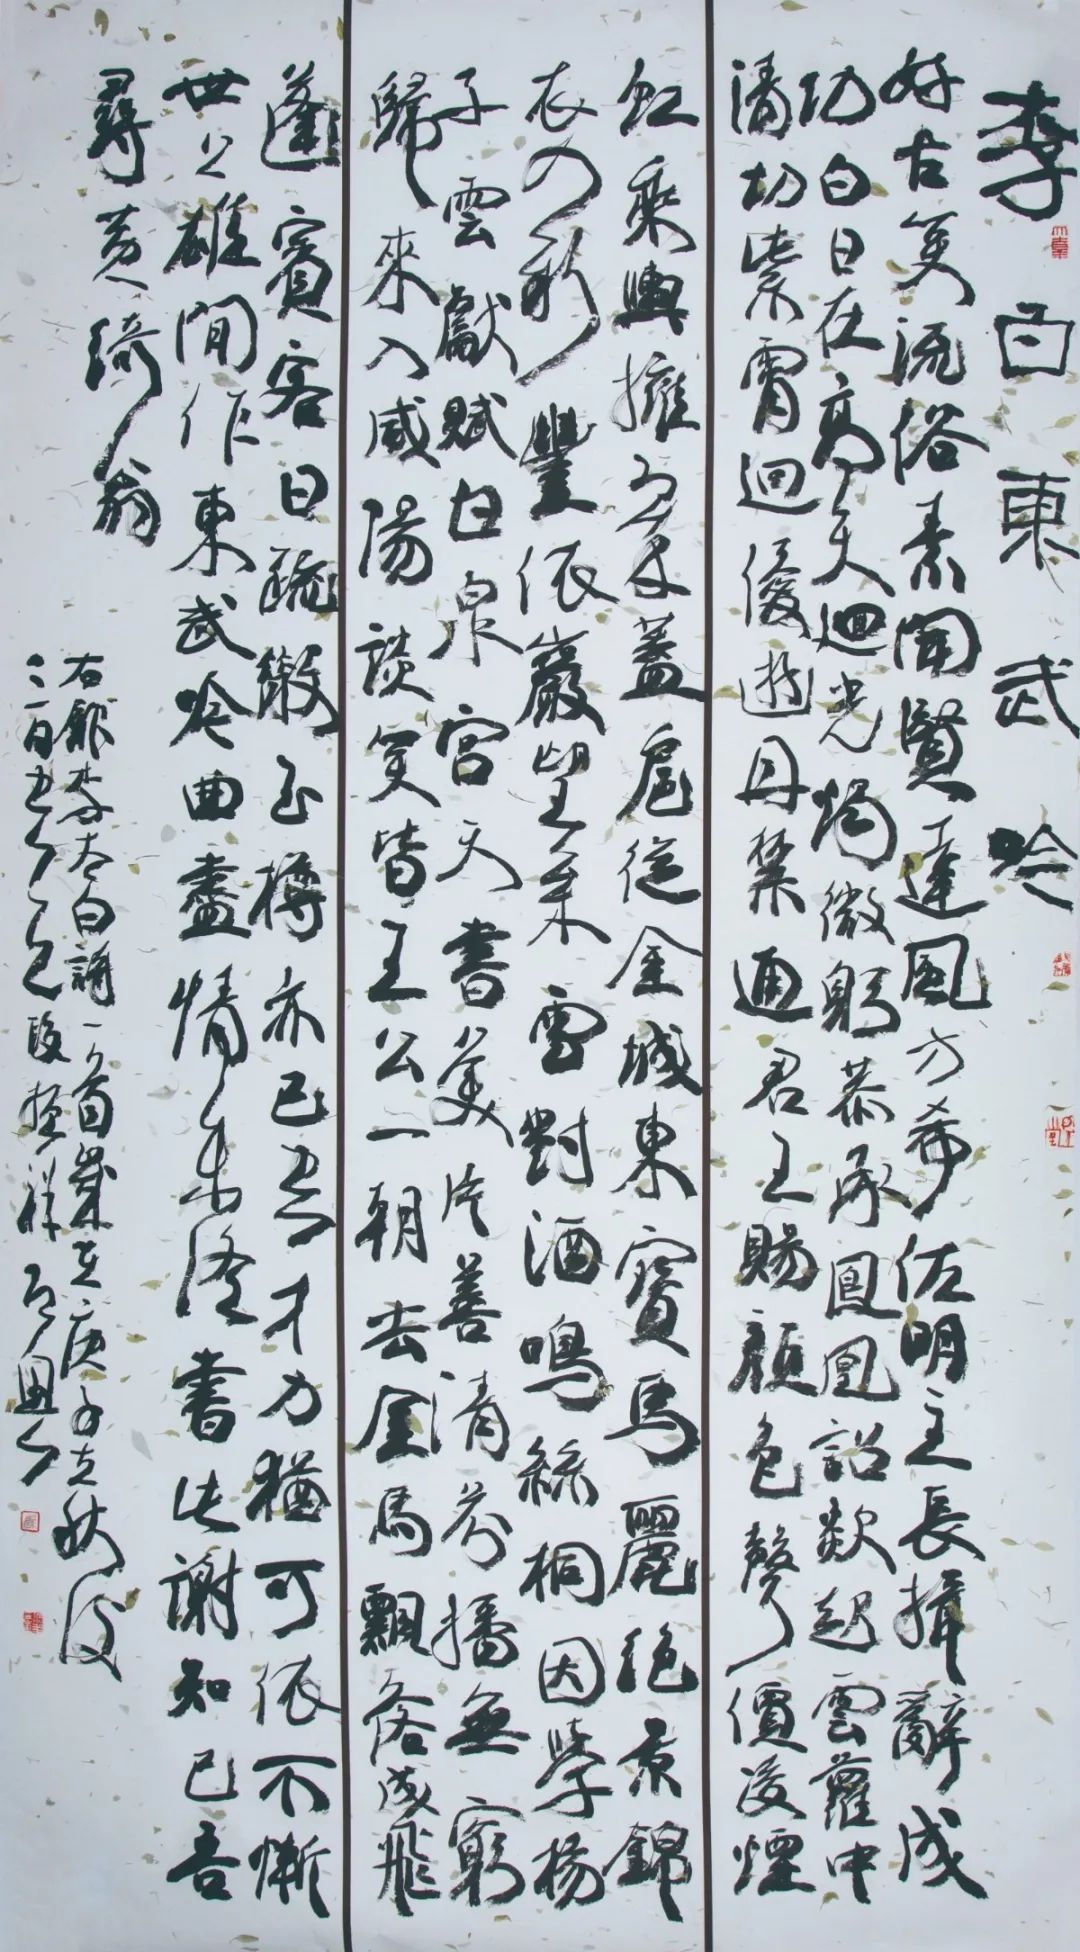 李白東武吟
好古笑流俗素聞賢達風方希佐明主長揖辭成
功白日在高天迴光燭微躬恭承鳳凰詔欻起雲蘿中
清切紫霄迥優遊丹禁通君王賜顏色聲價凌煙
虹乘輿擁翠蓋扈從金城東寶馬麗絕景錦
衣入新豐依巖望松雪對酒鳴絲桐因學揚
子雲獻賦甘泉宮天書美片善清芬播無窮
歸來入咸陽談笑皆王公一朝去金馬飄落成飛
蓬賓客日疏散玉樽亦已空才力猶可依不慚
世上雄閒作東武吟曲盡情未終書此謝知己吾
尋黃綺翁
右錄李太白詩一首歲在庚子立秋後